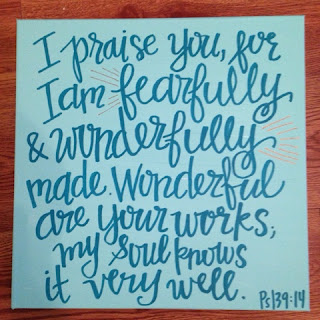 I praise you, for
I am fearfully
& wonderfully
made. Wonderful
are your works;
my soul knows
it very well.
Ps 139:14